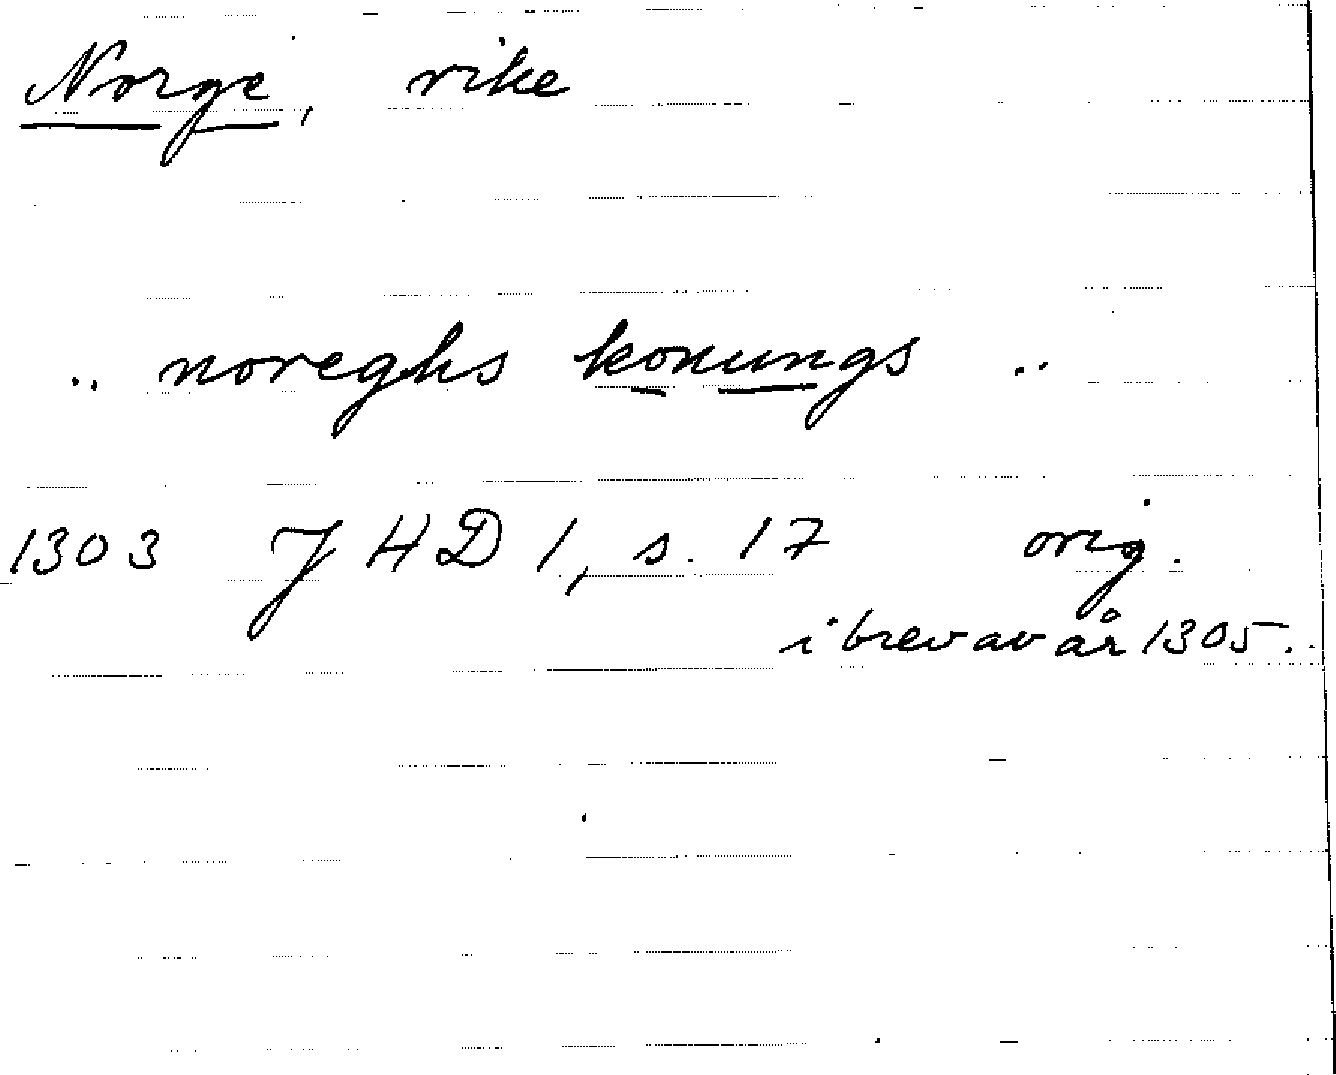 Norge, rike
.. noreghs konungs ..
1303 JHD 1, s. 17 orig.
i brev av år 1305..